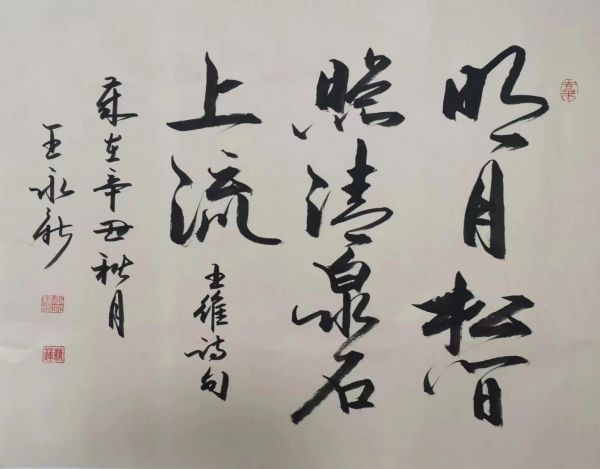 明月松间
照清泉石
上流 王维诗句
岁在辛丑秋月
王永新